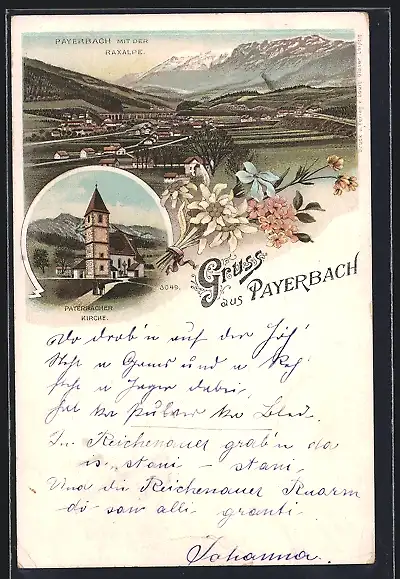 PAYERBACH MIT DER
RAXALPE.
PAYERBACHER
KIRCHE.
3049.
Gruss
aus PAYERBACH
Do drob'n auf der Höh'
steht a Gams und a Reh
steht a Jager dabei,
hat ka Pulver ka Blei.
In Reichenauer grab'n da
is stani - stani,
Und die Reichenauer
di san alli granti
Johanna.